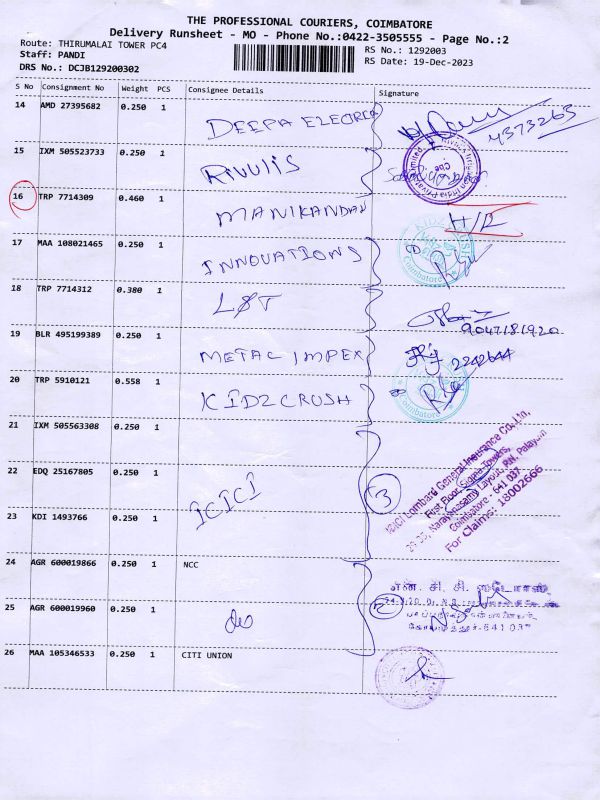 THE PROFESSIONAL COURIERS, COIMBATORE
Delivery Runsheet - MO - Phone No.:0422-3505555 - Page No.:2
Route: THIRUMALAI TOWER PC4 RS No.: 1292003
Staff: PANDI RS Date: 19-Dec-2023
DRS No.: DCJB129200302
S No Consignment No Weight PCS Consignee Details Signature
14 AMD 27395682 0.250 1
DEEPA ELECRCA 4373263
15 IXM 505523733 0.250 1
RIVULIS
16 TRP 7714309 0.460 1
MANIKANDAN H/R
17 MAA 108021465 0.250 1
INNOVATIONS
18 TRP 7714312 0.380 1
L&T
9047181920
19 BLR 495199389 0.250 1
METAL IMPEX 2242644
20 TRP 5910121 0.558 1
KIDZCRUSH
Coimbatore
21 IXM 505563308 0.250 1
ICICI Lombard General Insurance Co. Ltn,
First Floor, Sigma Towers,
29-33, Narayanasamy Layout, RN. Palayam
Coimbatore - 641 037.
For Claims: 18002666
22 EDQ 25167805 0.250 1
ICICI 3
23 KDI 1493766 0.250 1
24 AGR 600019866 0.250 1 NCC
25 AGR 600019960 0.250 1
do 2
26 MAA 105346533 0.250 1 CITI UNION